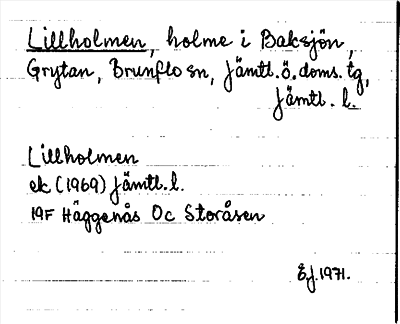 Lillholmen, holme i Baksjön,
Grytan, Brunflo sn, Jämtl. ö. doms. tg,
Jämtl. l.
Lillholmen
ek (1969) Jämtl. l.
19F Häggenås Oc Storåsen
EJ. 1971.